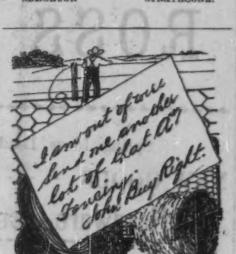 I am out of wire
Send me another
lot of that A7
Fencing.
John Buy Right.